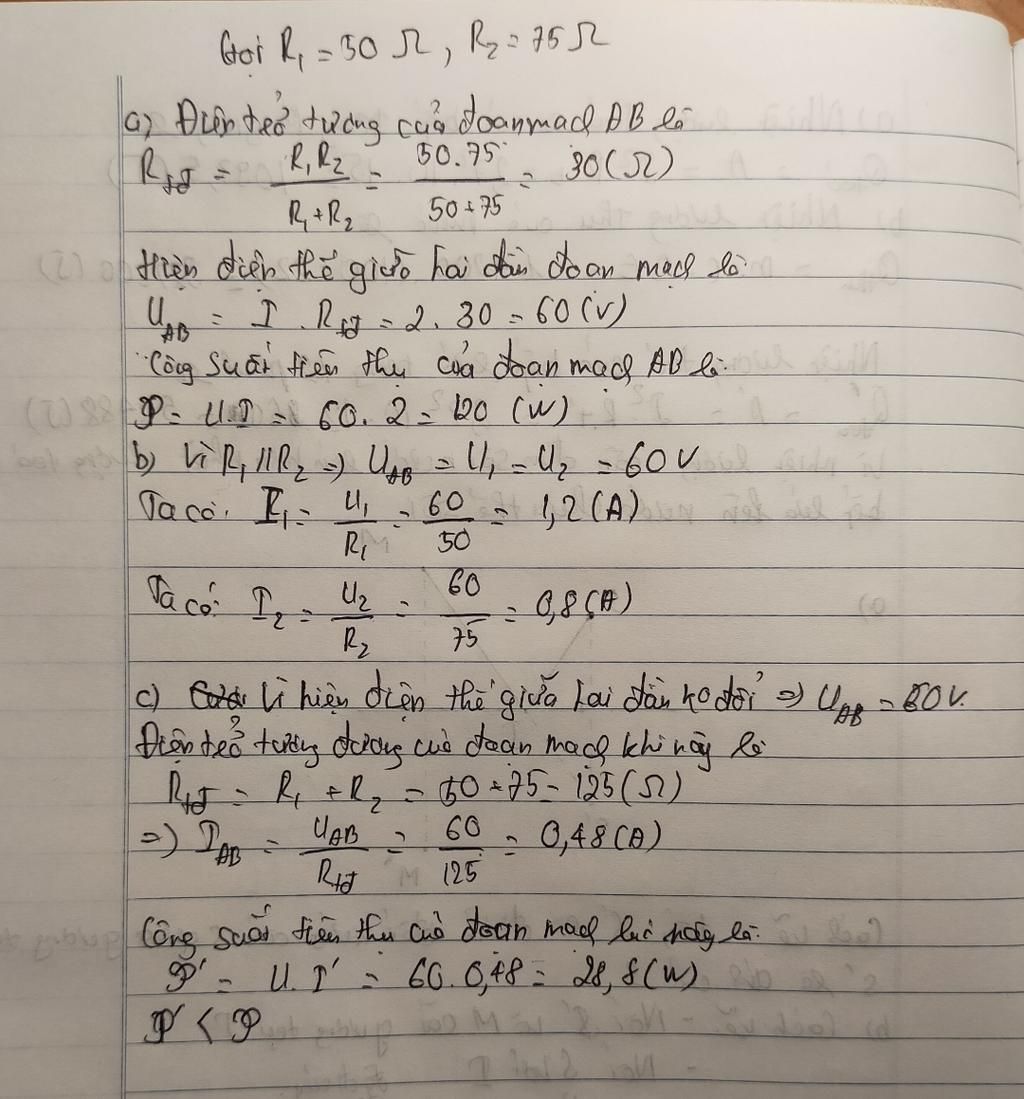 Gọi R₁ = 50 Ω, R₂ = 75 Ω
a) Điện trở tương của đoạn mạch AB là
Rtđ = R₁R₂ / R₁+R₂ = 50.75 / 50+75 = 30 (Ω)
Hiệu điện thế giữa hai đầu đoạn mạch là
U_AB = I . Rtđ = 2. 30 = 60 (V)
Công suất tiêu thụ của đoạn mạch AB là
P = U.I = 60. 2 = 120 (W)
b) Vì R₁ // R₂ => U_AB = U₁ = U₂ = 60V
Ta có: I₁ = U₁ / R₁ = 60 / 50 = 1,2 (A)
Ta có: I₂ = U₂ / R₂ = 60 / 75 = 0,8 (A)
c) Vì hiệu điện thế giữa hai đầu ko đổi => U_AB = 60V.
Điện trở tương đương của đoạn mạch khi này là
Rtđ = R₁ + R₂ = 50 + 75 = 125 (Ω)
=> I_AB = U_AB / Rtđ = 60 / 125 = 0,48 (A)
Công suất tiêu thụ của đoạn mạch lúc này là:
P' = U.I' = 60. 0,48 = 28,8 (W)
P' < P